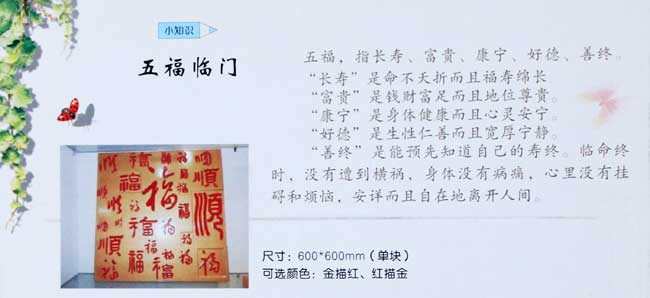 小知识
五福临门
五福，指长寿、富贵、康宁、好德、善终。
“长寿”是命不夭折而且福寿绵长
“富贵”是钱财富足而且地位尊贵。
“康宁”是身体健康而且心灵安宁。
“好德”是生性仁善而且宽厚宁静。
“善终”是能预先知道自己的寿终。临命终
时，没有遭到横祸，身体没有病痛，心里没有挂
碍和烦恼，安详而且自在地离开人间。
順 福 順 福
尺寸：600*600mm（单块）
可选颜色：金描红、红描金